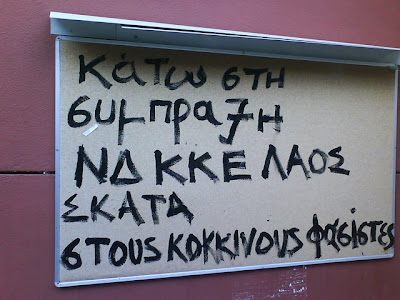 κάτω στη
συμπραξη
ΝΔ ΚΚΕ ΛΑΟΣ
ΣΚΑΤΑ
στους κοκκινους φασίστες